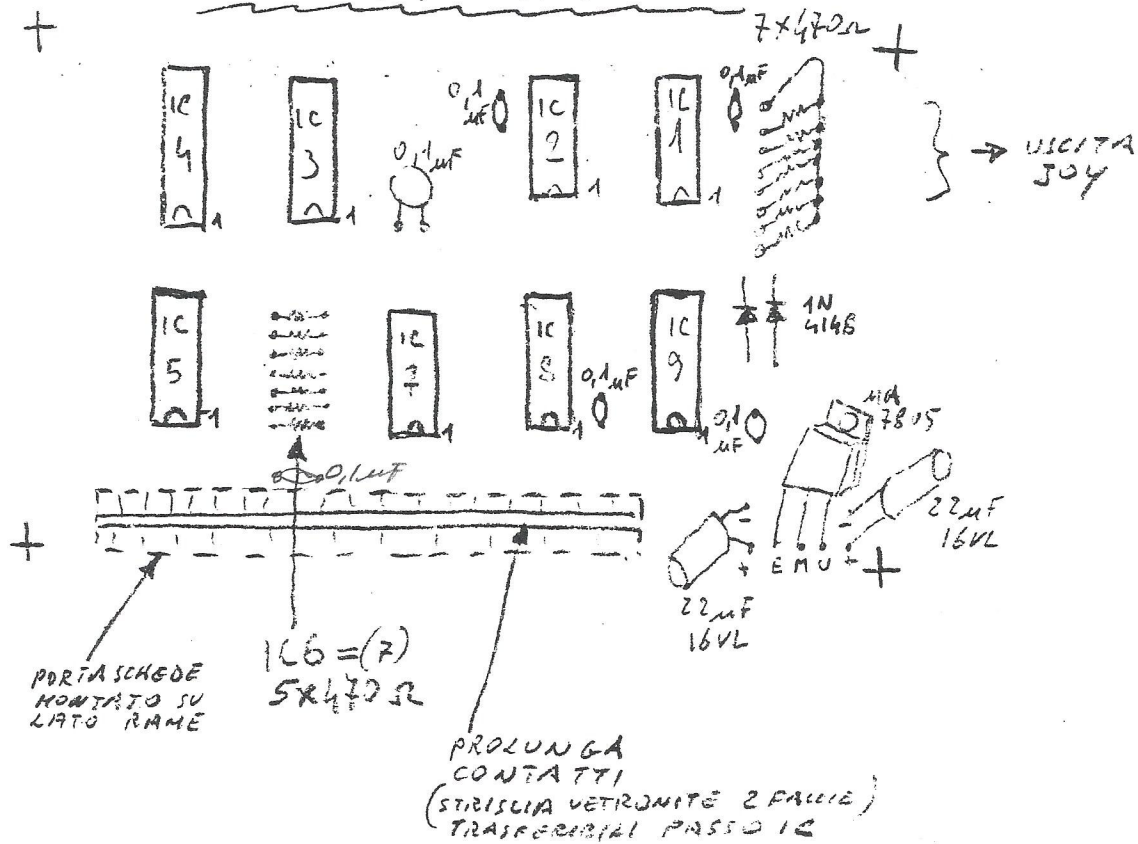 7×470Ω
IC 4 1
IC 3 1
0,1µF
0,1 µF
IC 2 1
IC 1 1
0,1µF
→ USCITA JOY
IC 5 1
IC 7 1
IC 8 1
0,1µF
IC 9 1
0,1 µF
1N 4148
µA 7805
0,1µF
- + E M U - +
22µF
16VL
22µF
16VL
IC6 = (7)
5×470Ω
PORTASCHEDE
MONTATO SU
LATO RAME
PROLUNGA
CONTATTI
(STRISCIA VETRONITE 2 FACCIE)
TRASFERIBILI PASSO IC